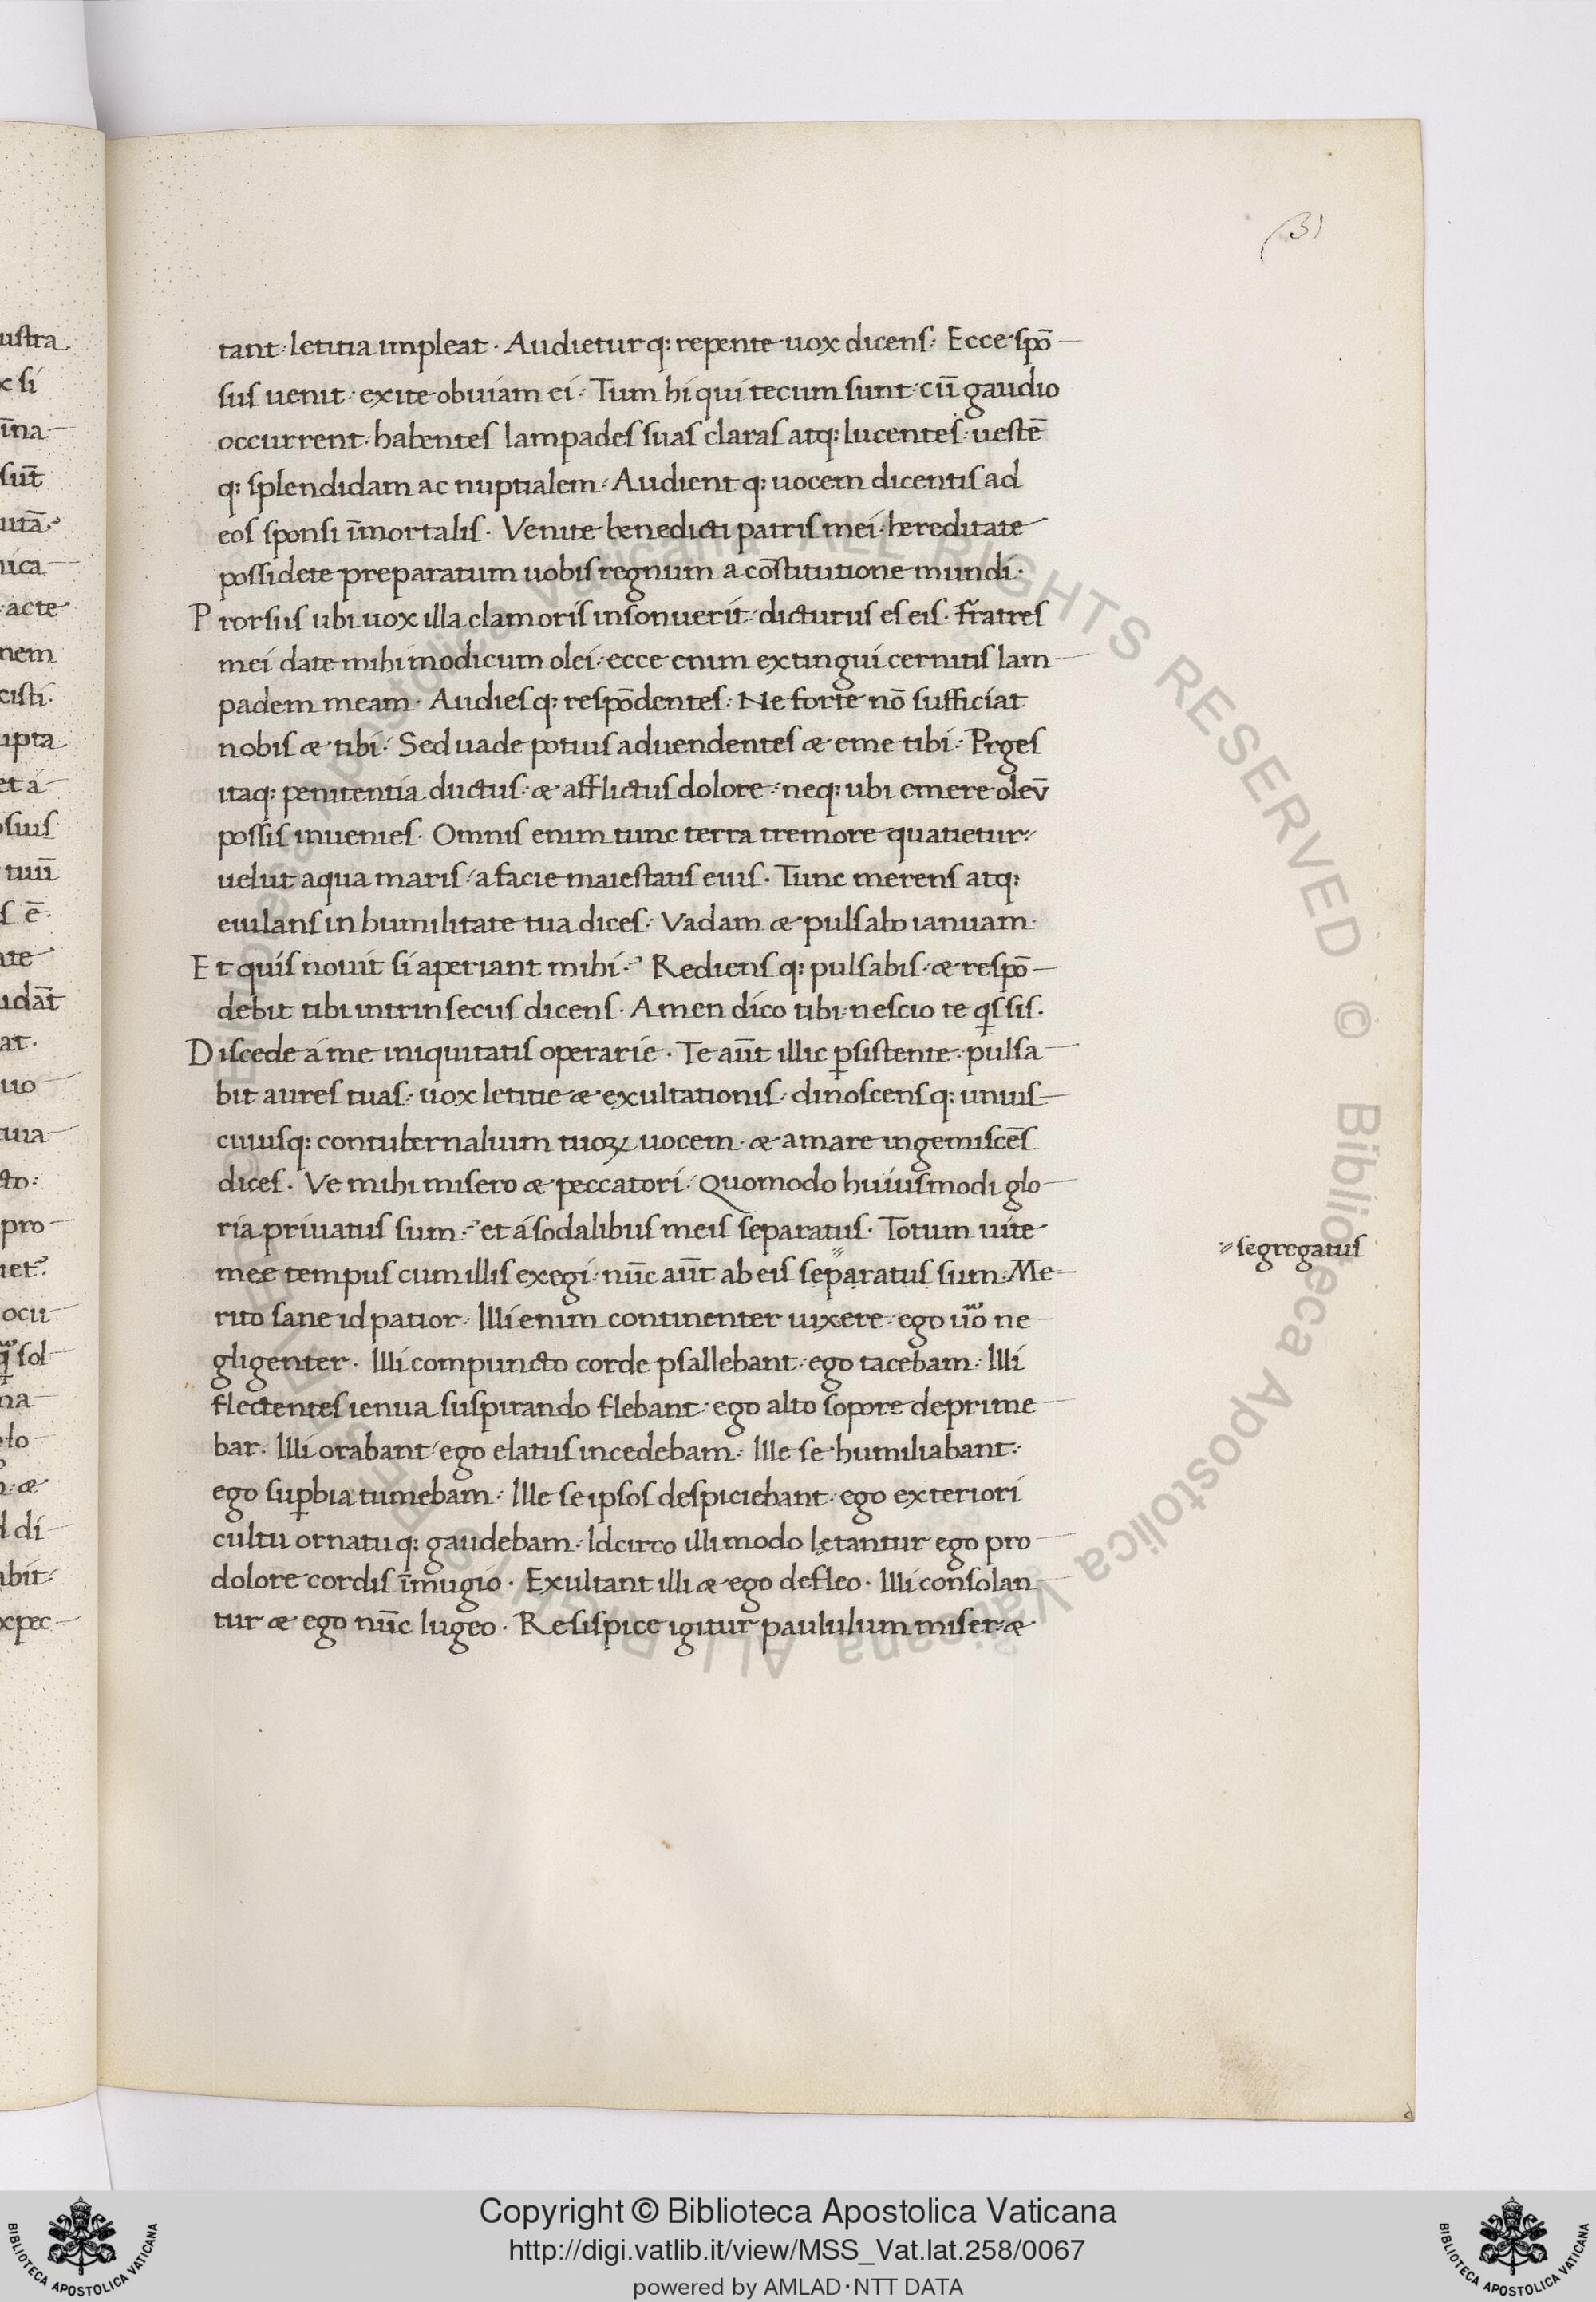 (31
tant: letitia impleat. Audietur q: repente uox dicens: Ecce spō
sus uenit: exite obuiam ei: Tum hi qui tecum sunt: cū gaudio
occurrent: habentes lampades suas claras atq: lucentes: uestē
q: splendidam ac nuptialem: Audient q: uocem dicentis ad
eos sponsi īmortalis. Venite benedicti patris mei: hereditate
possidete preparatum uobis regnum a cōstitutione mundi.
Prorsus ubi uox illa clamoris insonuerit: dicturus es eis. fr̄atres
mei date mihi modicum olei: ecce enim extingui cernitis lam
padem meam. Audies q: respōdentes: Ne forte nō sufficiat
nobis & tibi: Sed uade potius ad uendentes & eme tibi: Prges
itaq: penitentia ductus: & afflictus dolore: neq: ubi emere olev̄
possis inuenies. Omnis enim tunc terra tremore quatietur:
uelut aqua maris: a facie maiestatis eius. Tunc merens atq:
eiulans in humilitate tua dices: Vadam & pulsabo ianuam.
Et quis nouit si aperiant mihi? Rediens q: pulsabis: & respō
debit tibi intrinsecus dicens. Amen dico tibi: nescio te qs sis.
Discede á me iniquitatis operarie. Te aūt illic ꝑsistente: pulsa
bit aures tuas: uox letitie & exultationis: dinoscens q: unius
cuiusq: contubernalium tuoꝝ uocem. & amare ingemiscēs
dices. Ve mihi misero & peccatori: Quomodo huiusmodi glo
ria priuatus sum? et á sodalibus meis separatus. Totum uite
mee tempus cum illis exegi: nūc aūt ab eis separatus sum: Me
segregatus
rito sane id patior. Illi enim continenter uixere: ego ūo ne
gligenter. Illi compuncto corde psallebant: ego tacebam: Illi
flectentes ienua suspirando flebant: ego alto sopore deprime
bar. Illi orabant: ego elatus incedebam: Ille se humiliabant:
ego suꝑbia tumebam: Ille se ipsos despiciebant: ego exteriori
cultu ornatu q: gaudebam: Idcirco illi modo lętantur ego pro
dolore cordis īmugio. Exultant illi & ego defleo. Illi consolan
tur & ego nūc lugeo. Resispice igitur paululum miser: &
Copyright © Biblioteca Apostolica Vaticana
http://digi.vatlib.it/view/MSS_Vat.lat.258/0067
powered by AMLAD·NTT DATA